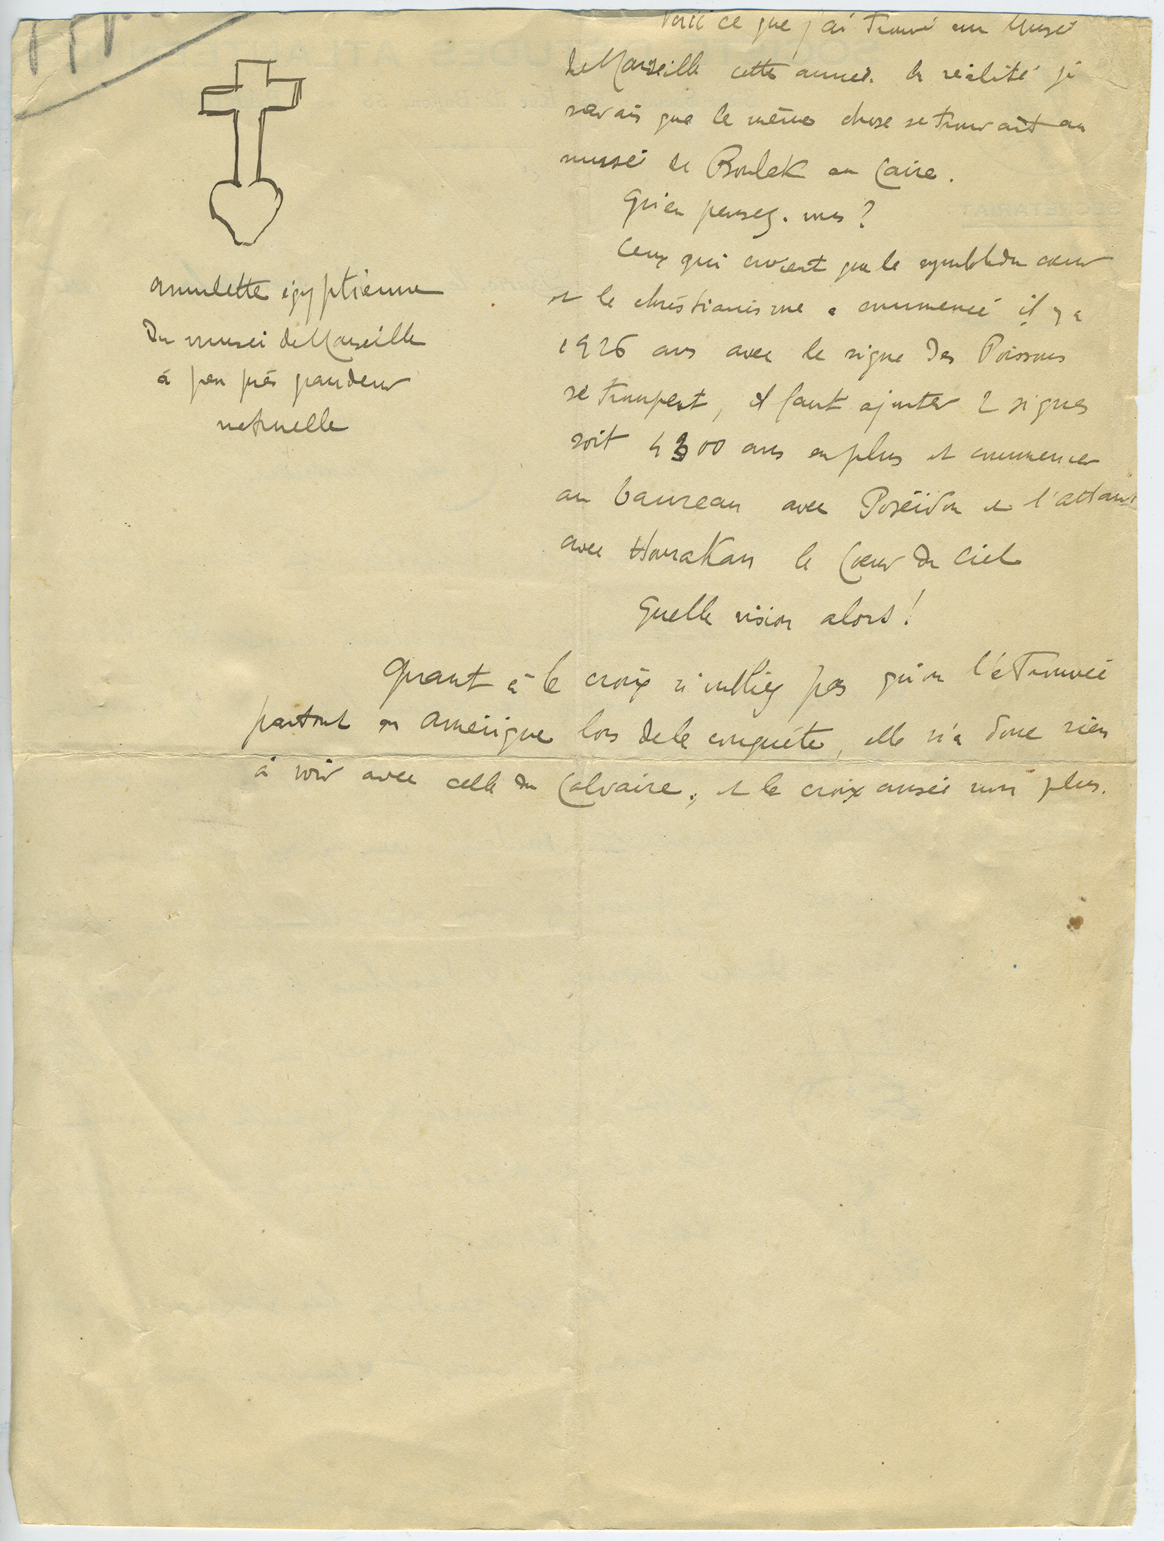 amulette égyptienne
du musée de Marseille
à peu près grandeur
naturelle
Voici ce que j'ai trouvé au Musée
de Marseille cette année. En réalité je
savais que la même chose se trouvait au
musée de Boulak au Caire.
Qu'en pensez-vous ?
Ceux qui croient que le symbole du cœur
et le christianisme a commencé il y a
1926 ans avec le signe des Poissons
se trompent, il faut ajouter 2 signes
soit 4300 ans en plus et commencer
au taureau avec Poséïdon et l'atlante
avec Hourakan le Cœur du Ciel
Quelle vision alors !
Quant à la croix n'oubliez pas qu'on l'a trouvée
partout en Amérique lors de la conquête, elle n'a donc rien
à voir avec celle du Calvaire, et la croix ansée non plus.